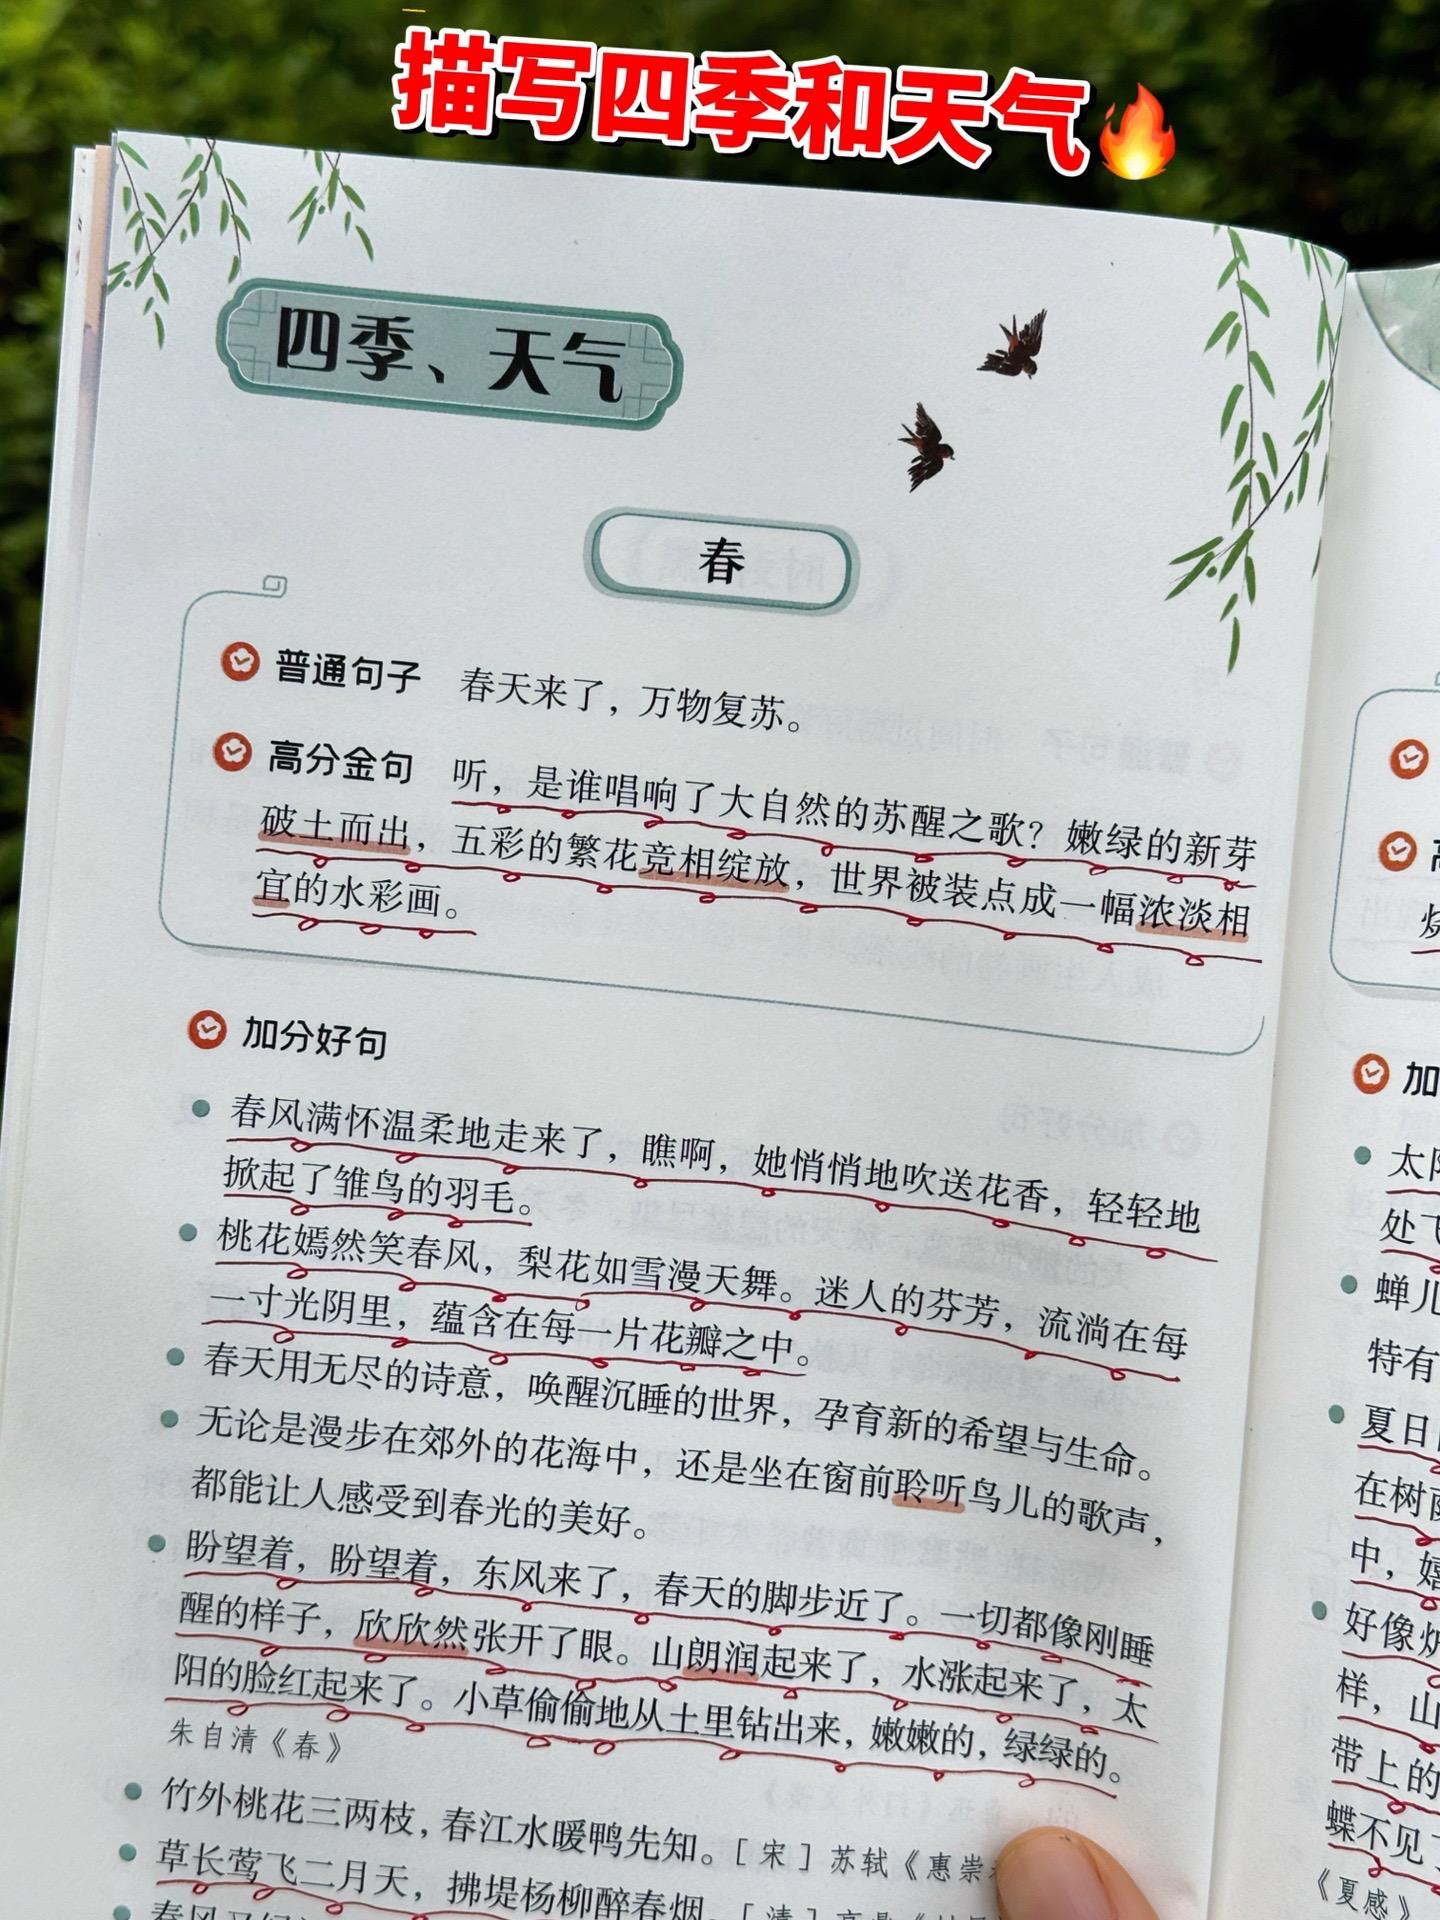 描写四季和天气
四季、天气
春
普通句子 春天来了，万物复苏。
高分金句 听，是谁唱响了大自然的苏醒之歌？嫩绿的新芽
破土而出，五彩的繁花竞相绽放，世界被装点成一幅浓淡相
宜的水彩画。
加分好句
春风满怀温柔地走来了，瞧啊，她悄悄地吹送花香，轻轻地
掀起了雏鸟的羽毛。
桃花嫣然笑春风，梨花如雪漫天舞。迷人的芬芳，流淌在每
一寸光阴里，蕴含在每一片花瓣之中。
春天用无尽的诗意，唤醒沉睡的世界，孕育新的希望与生命。
无论是漫步在郊外的花海中，还是坐在窗前聆听鸟儿的歌声，
都能让人感受到春光的美好。
盼望着，盼望着，东风来了，春天的脚步近了。一切都像刚睡
醒的样子，欣欣然张开了眼。山朗润起来了，水涨起来了，太
阳的脸红起来了。小草偷偷地从土里钻出来，嫩嫩的，绿绿的。
朱自清《春》
竹外桃花三两枝，春江水暖鸭先知。［宋］苏轼《惠崇
草长莺飞二月天，拂堤杨柳醉春烟。［清］高鼎
春风又绿
加
太
处飞
蝉儿
特有
夏日
在树
中，嬉
好像
样，山
带上的
蝶不见了
《夏感》